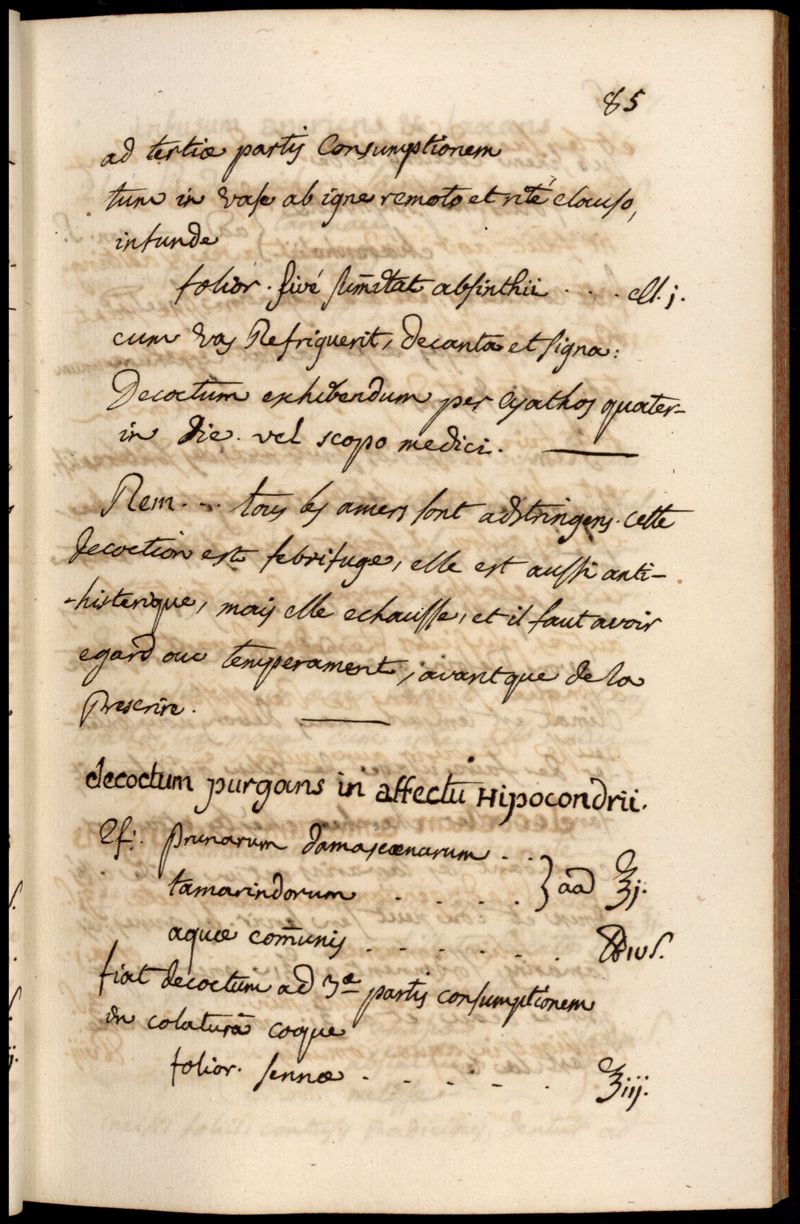 85
ad tertiæ partis Consumptionem
tum in vase ab igne remoto et rité clauso,
infunde
folior. sivé sum̄itat absinthii . . . . M. j.
cum vas Refriguerit, decanta et signa:
Decoctum exhibendum per cyathos quater-
in die. vel scopo medici.
Rem... tous les amers sont adstringens. cette
decoction est febrifuge, elle est aussi anti-
-histerique, mais elle echauffe, et il faut avoir
egard au temperament, avant que de la
Prescrire.
decoctum purgans in affectu Hipocondrii.
prunarum damascœnarum . . } aa ℥j.
tamarindorum . . . . .
aquæ com̄unis . . . . . . . ℔ivs.
fiat decoctum ad 3æ partis consumptionem
in colaturâ coque
folior. sennæ . . . . . ℥iij.